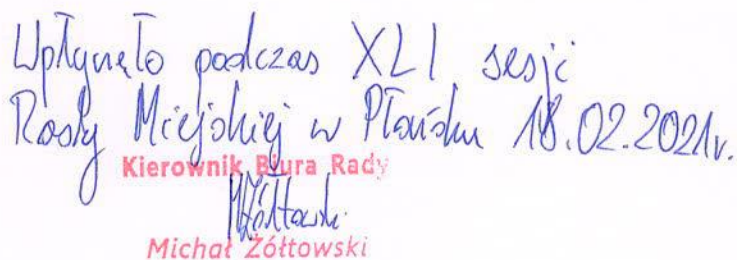 Wpłynęło podczas XLI sesji
Rady Miejskiej w Płońsku 18.02.2021r.
Kierownik Biura Rady
MŻółtowski
Michał Żółtowski